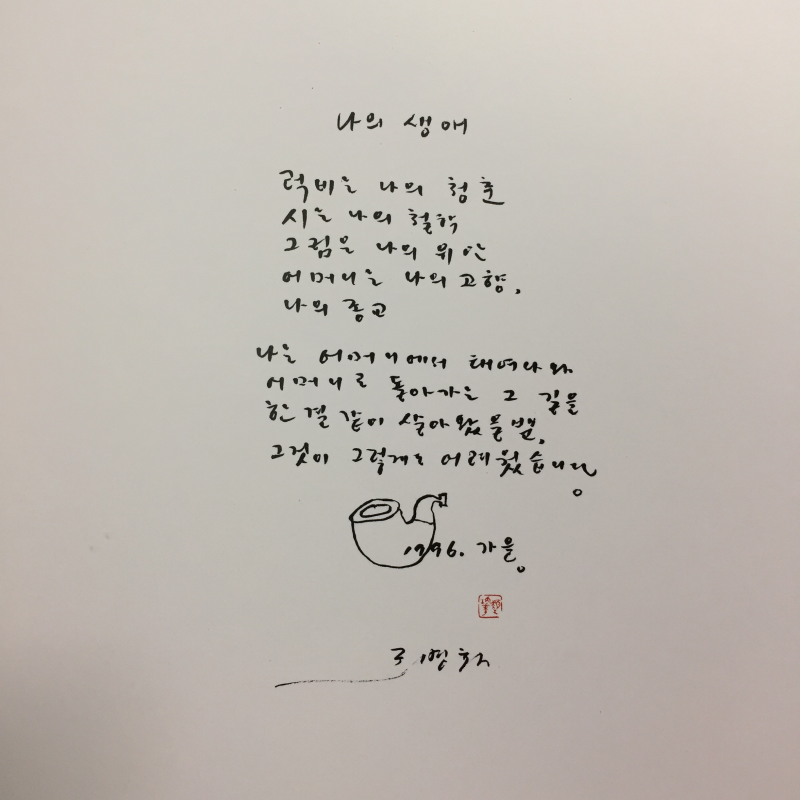 나의 생애
럭비는 나의 청춘
시는 나의 철학
그림은 나의 위안
어머니는 나의 고향,
나의 종교
나는 어머니에서 태어나와
어머니로 돌아가는 그 길을
한결같이 살아왔을뿐,
그것이 그렇게도 어려웠습니다.
1996. 가을.
조병화